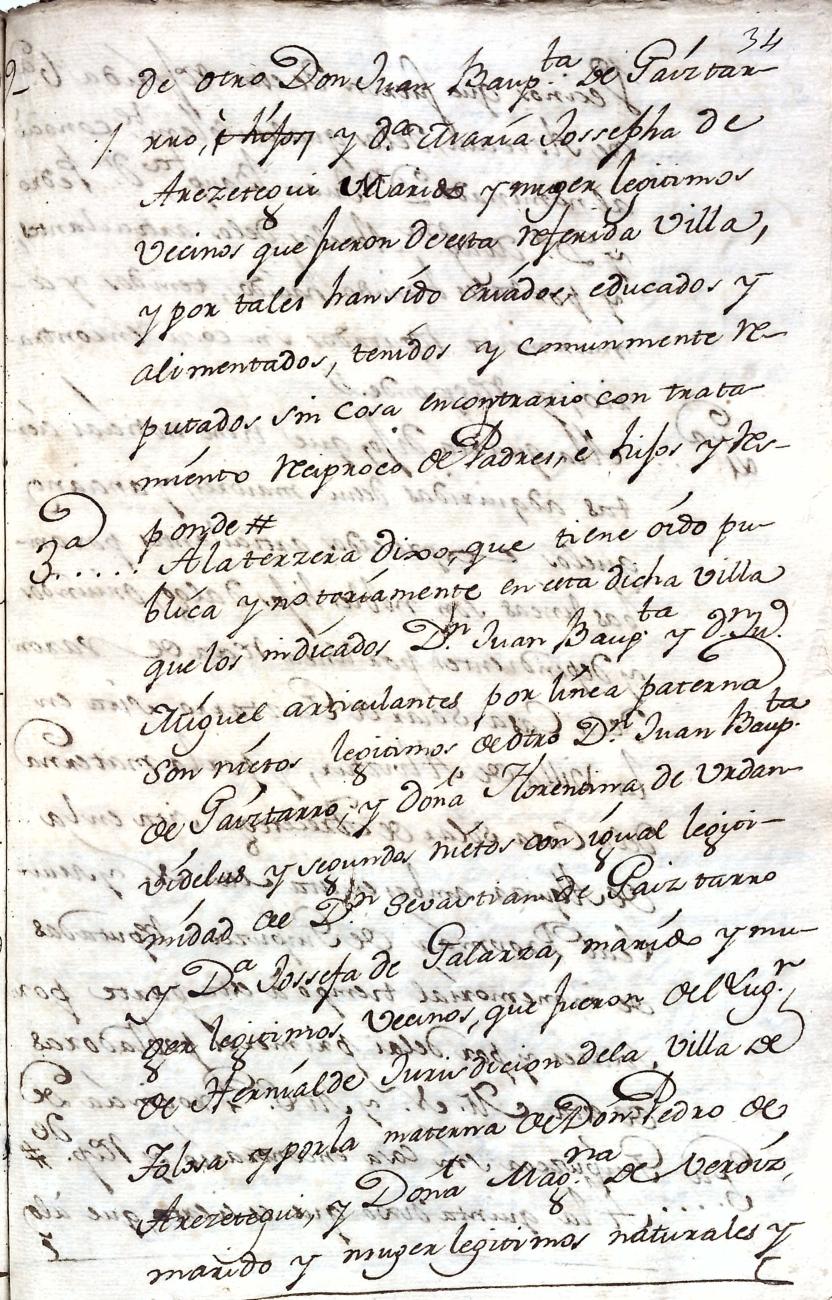 34
de otro Don Juan Baup.ta de Gaíztar-
rro, è hijos y d.a María Jossepha de
Arezetegui Marido y muger legitimos
Vecinos que fueron de esta referida Villa,
y por tales han sído criádos, educados y
alimentados, tenidos y comunmente re-
putados sin cosa encontrario con trata
miento reciproco de Padres, è hijos y res-
ponde #
3a..... A la terzera dixo, que tiene oído pu-
blíca y notoríamente en esta dicha villa
que los indícados D.n Juan Baup.ta y d.n Ju.
Míguel articulantes por linea paterna
son niétos legitimos de otro D.n Juan Baup.ta
de Gaíztarro, y doña Florentina de Urdan-
vídelus y segundos niétos con igual legiti-
midad de D.n Sevastian de Gaiztarro
y D.a Jossefa de Galarza, marído y mu-
ger legitimos, Vecinos, que fueron del Lug.r
de Herníalde Jurisdicion dela Villa de
Tolosa y por la materna de Don Pedro de
Arezetegui, y Doña Mag.na de Verdíz,
marído y muger legitimos naturales y